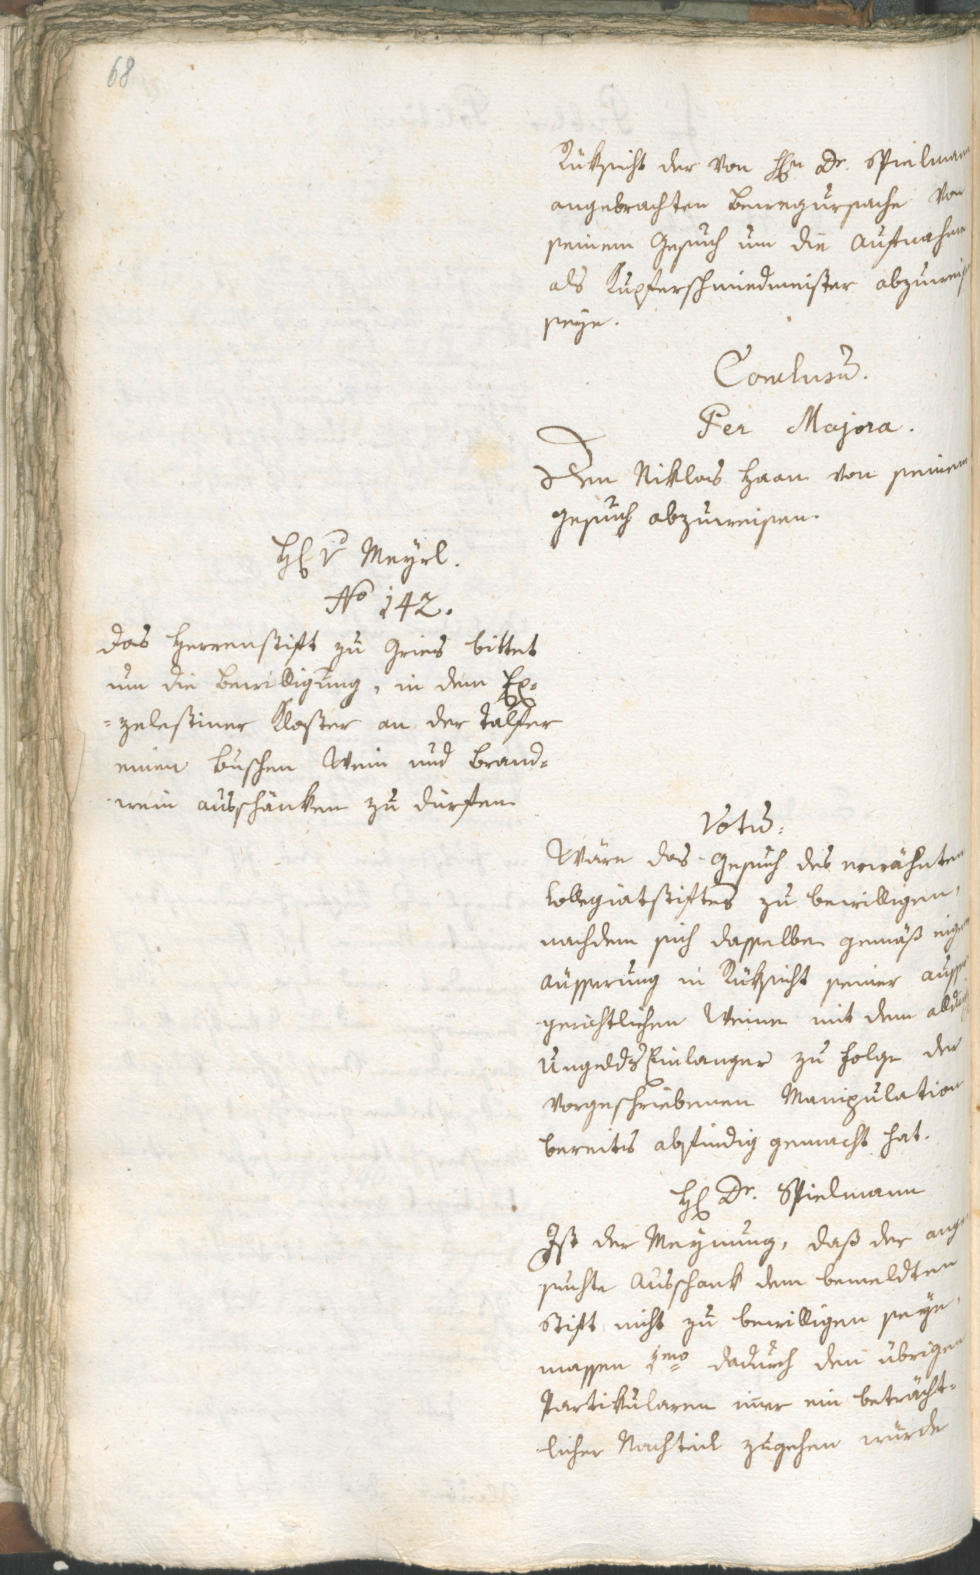 68
Rüksicht der von H[err]n Dr. Spielmann
angebrachten Bewegursache von
seinem Gesuch um die Aufnahm
als Kupferschmiedmeister abzuweis
seÿe.
Conclusū.
Per Majora.
Den Niklas Haan von seinem
Gesuch abzuweisen.
H v Meÿrl.
No 142.
Das Herrenstift zu Gries bittet
um die Bewilligung, in dem Ex-
=zelestiner Kloster an der Talfer
einen Buschen Wein und Brand=
wein ausschänken zu dürfen
Votū:
Wäre das Gesuch des erwähnten
Kollegiatstiftes zu bewilligen,
nachdem sich dasselbe gemäß eig
äusserung in Rüksicht seiner auss
gerichtlichen Weine mit dem
Ungelds Einlanger zu Folge der
vorgeschriebenen Manipulation
bereits abfindig gemacht hat.
H Dr. Spielmann
Ist der Meÿnung, daß der ang
suchte Ausschank dem bemeldten
Stift nicht zu bewilligen seÿe,
massen 1mo dadurch den übrigen
Partikularen im̄er ein beträcht=
licher Nachteil zugehen würde